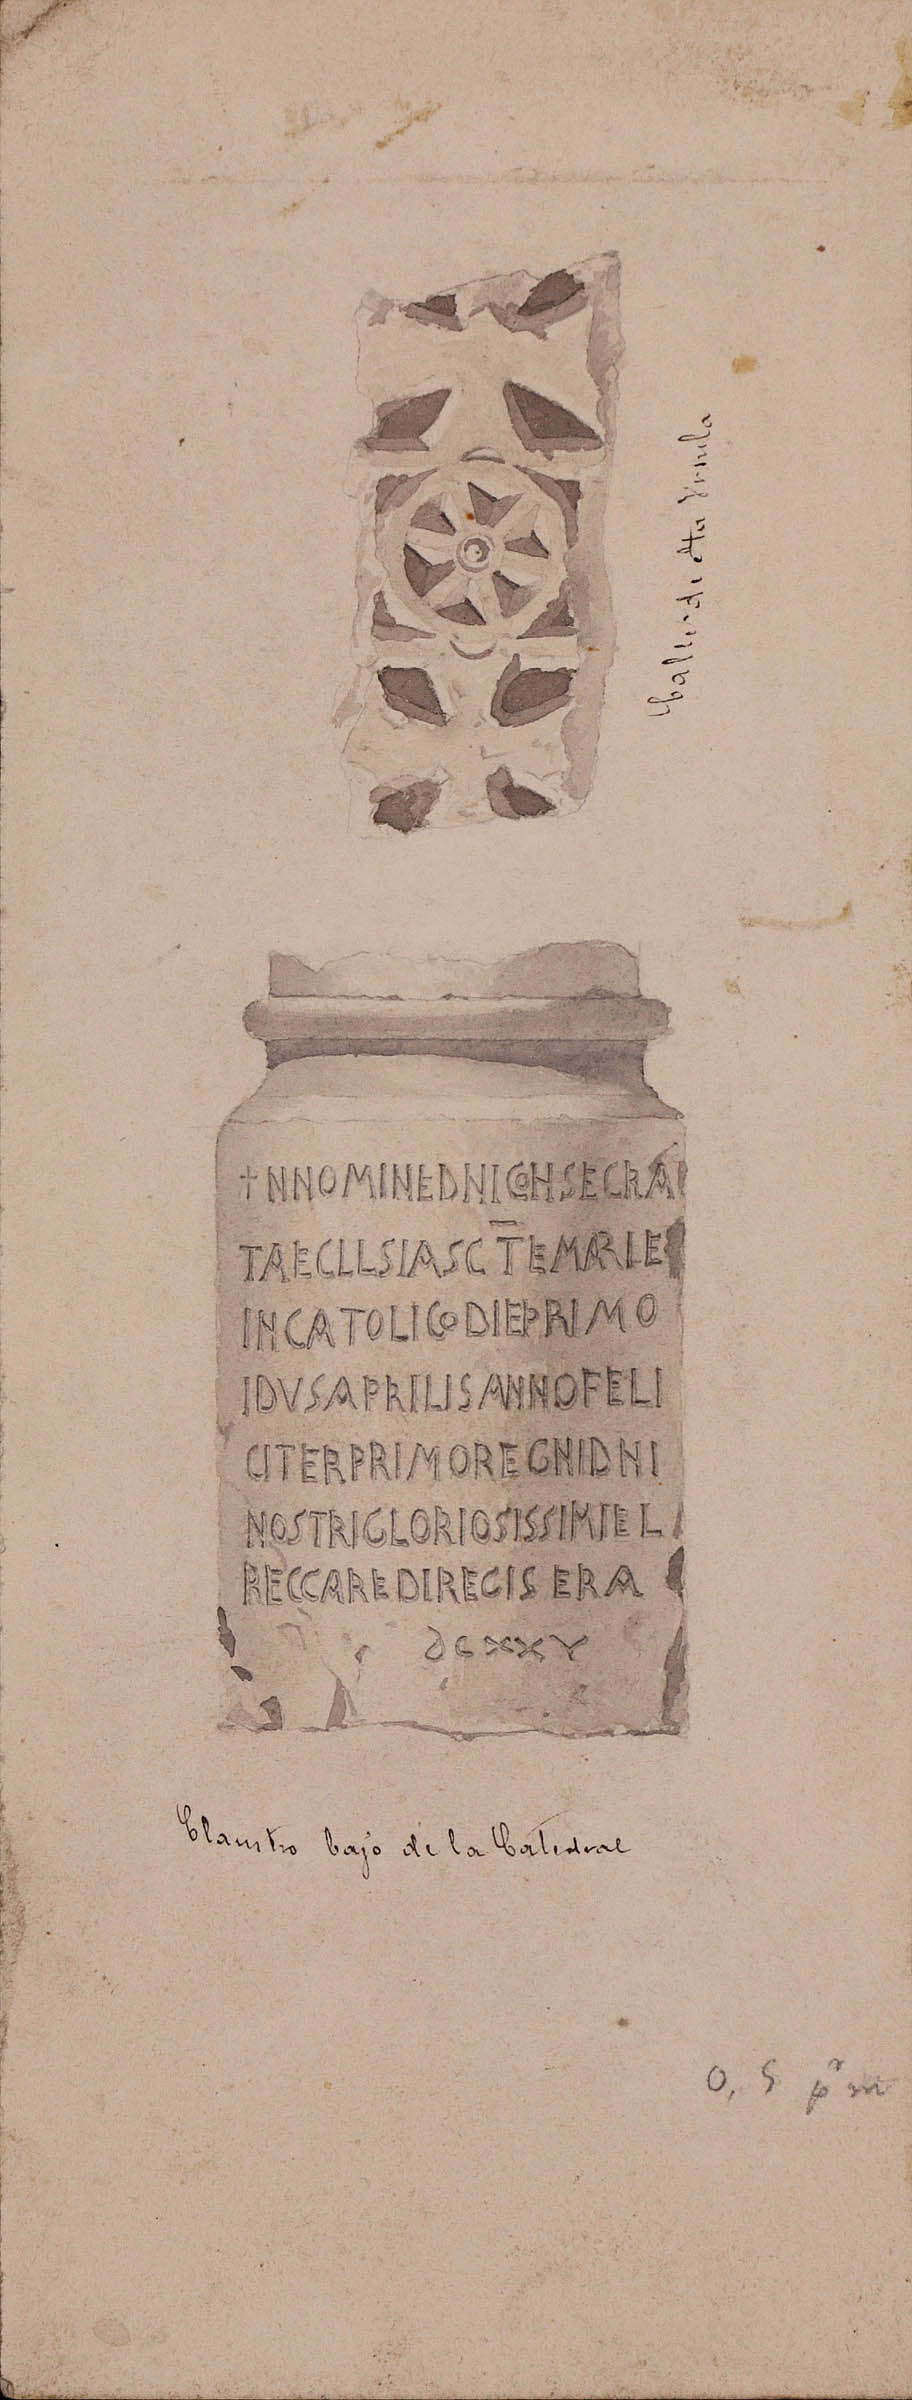 Calle de Sta Ursula
†NNOMINEDNICONSECRA
TAECLLSIASCTEMARIE
INCATOLICODIEPRIMO
IDVSAPRILISANNOFELI
CITERPRIMOREGNIDNI
NOSTRIGLORIOSISSIMIEL
RECCAREDIREGIS ERA
DCXXV
Claustro bajo de la Catedral
0,5 pr m